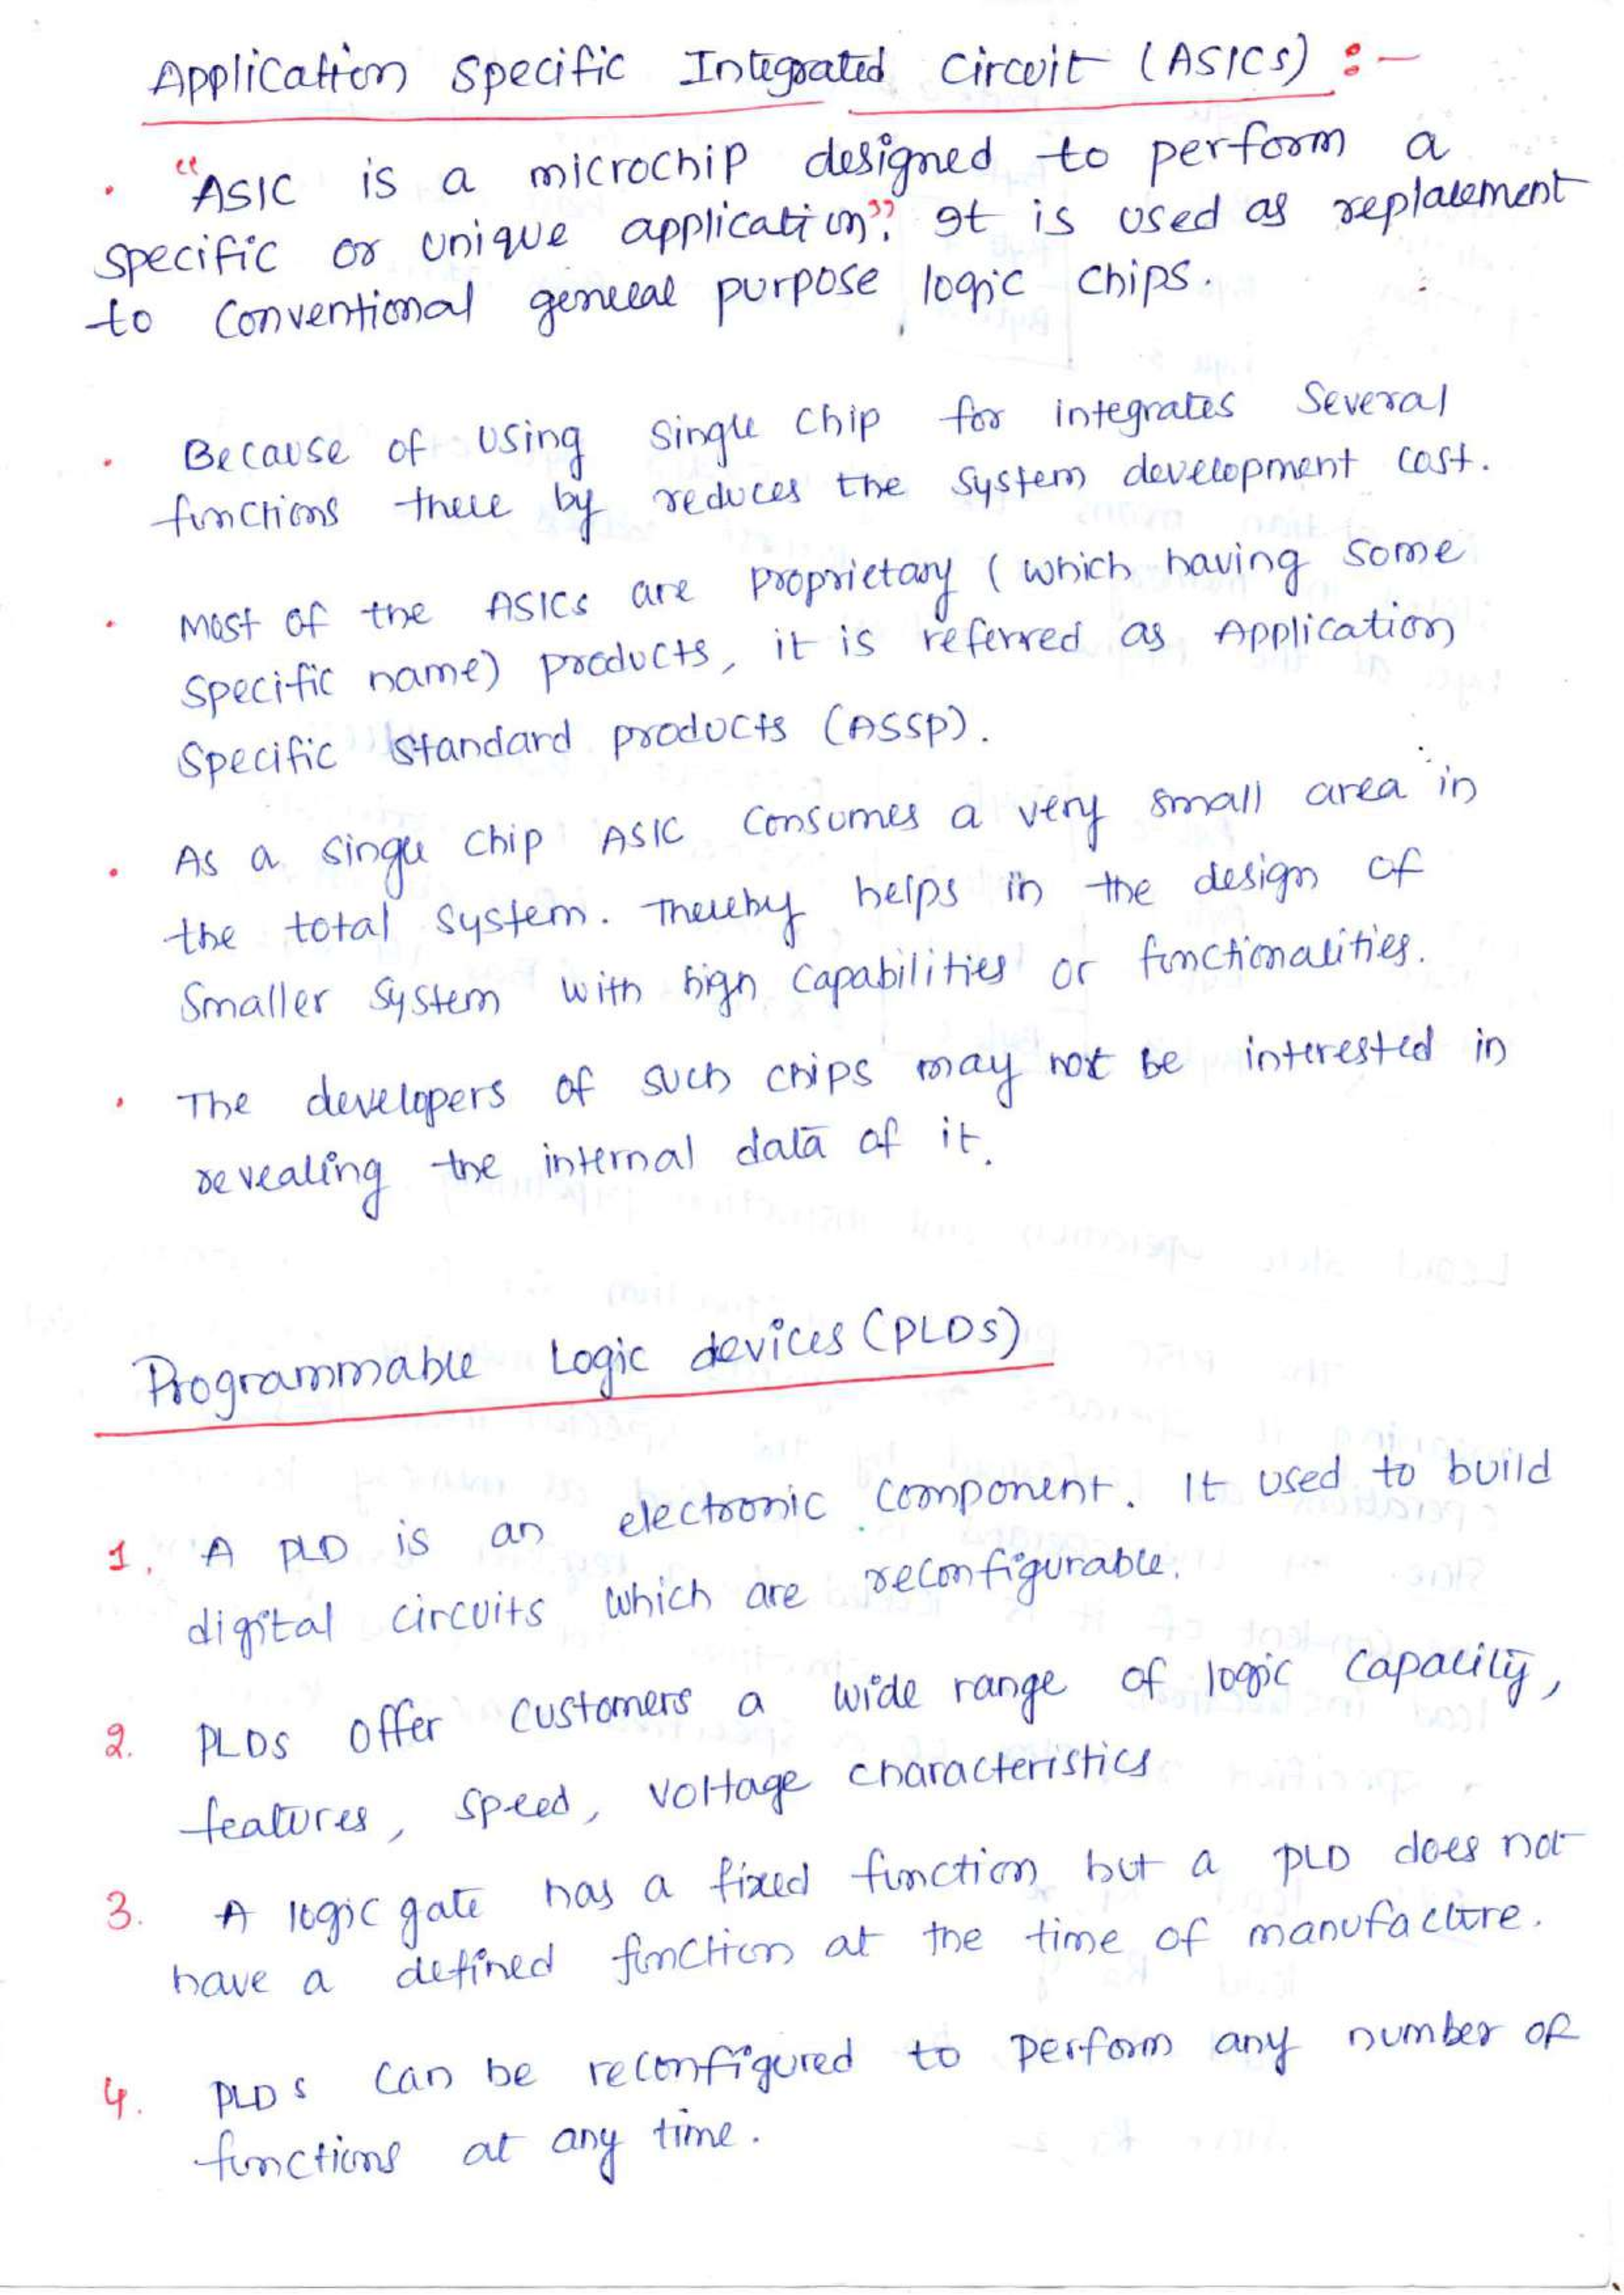 Application Specific Integrated Circuit (ASICs) :-
• "ASIC is a microchip designed to perform a
specific or unique application". It is used as replacement
to conventional general purpose logic chips.
• Because of using single chip for integrates several
functions there by reduces the system development cost.
• Most of the ASICs are proprietary (which having some
specific name) products, it is referred as Application
Specific Standard products (ASSP).
• As a single chip ASIC consumes a very small area in
the total system. Thereby helps in the design of
smaller system with high capabilities or functionalities.
• The developers of such chips may not be interested in
revealing the internal data of it.
Programmable Logic devices (PLDs)
1. A PLD is an electronic component. It used to build
digital circuits which are reconfigurable.
2. PLDs offer customers a wide range of logic capacity,
features, speed, voltage characteristics
3. A logic gate has a fixed function but a PLD does not
have a defined function at the time of manufacture.
4. PLDs can be reconfigured to perform any number of
functions at any time.